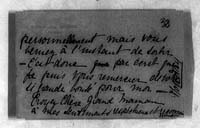 32
personnellement mais vous
venez à l'instant de sortir
- C'est donc que par écrit que
je puis vous remercier
grande bonté pour moi -
Croyez Chère grand Maman
à mes sentiments respectueux